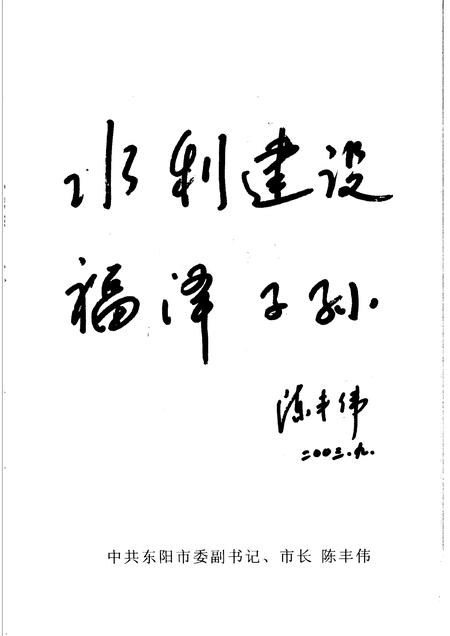 水利建设
福泽子孙
陈丰伟
二〇〇三.九.
中共东阳市委副书记、市长 陈丰伟